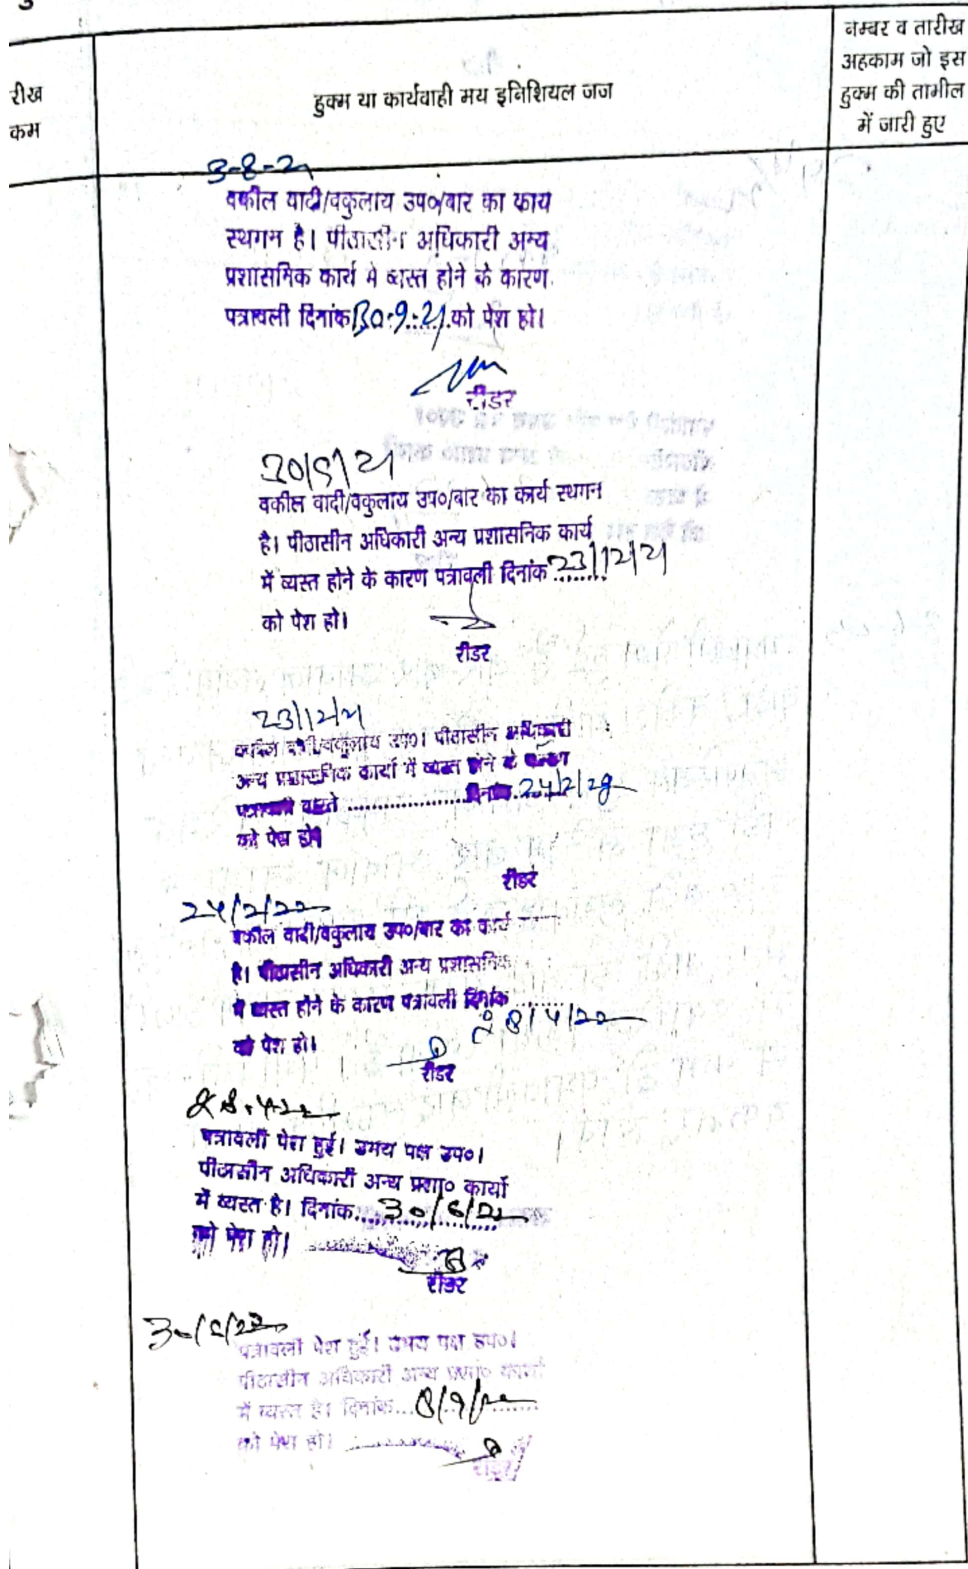 रीख
कम
हुक्म या कार्यवाही मय इनिशियल जज
नम्बर व तारीख
अहकाम जो इस
हुक्म की तामील
में जारी हुए
3-8-21
वकील वादी/वकुलाय उप०/बार का कार्य
स्थगन है। पीठासीन अधिकारी अन्य
प्रशासनिक कार्य मे व्यस्त होने के कारण
पत्रावली दिनांक 30.9.21 को पेश हो।
रीडर
30/9/21
वकील वादी/वकुलाय उप०/बार का कार्य स्थगन
है। पीठासीन अधिकारी अन्य प्रशासनिक कार्य
में व्यस्त होने के कारण पत्रावली दिनांक 23/12/21
को पेश हो।
रीडर
23/12/21
वकील वादी/वकुलाय उप०। पीठासीन अधिकारी
अन्य प्रशासनिक कार्यो में व्यस्त होने के कारण
पत्रावली वास्ते .................... दिनांक 24/2/22
को पेश हो।
रीडर
24/2/22
वकील वादी/वकुलाय उप०/बार का कार्य
है। पीठासीन अधिकारी अन्य प्रशासनिक
मे व्यस्त होने के कारण पत्रावली दिनांक
28/4/22
को पेश हो।
रीडर
28.4.22
पत्रावली पेश हुई। उभय पक्ष उप०।
पीठासीन अधिकारी अन्य प्रशा० कार्यो
में व्यस्त है। दिनांक....30/6/22
को पेश हो।
रीडर
30/6/22
पत्रावली पेश हुई। उभय पक्ष उप०।
पीठासीन अधिकारी अन्य प्रशा० कार्यो
में व्यस्त है। दिनांक...8/9/22
को पेश हो।
रीडर